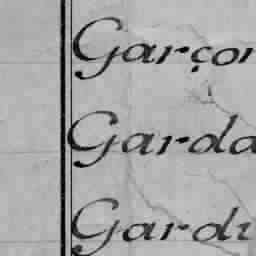 Garçon
Garda
Gardi